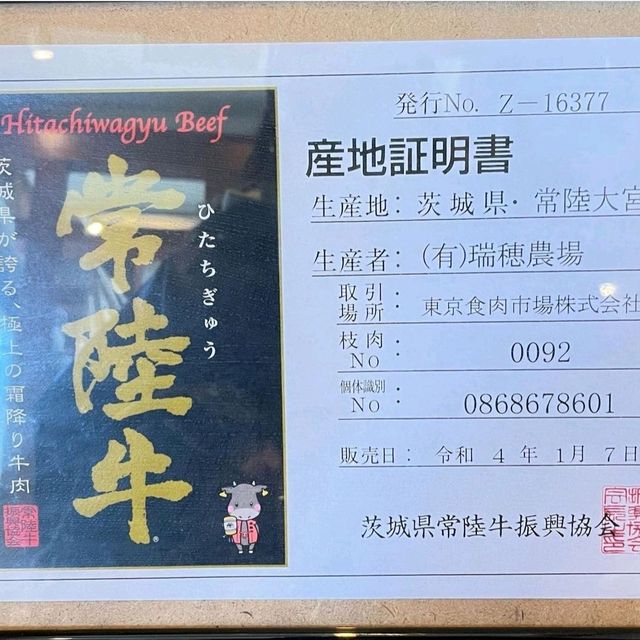 Hitachiwagyu Beef
茨城県が誇る、極上の霜降り牛肉
常陸牛
ひたちぎゅう
常陸牛
振興協会
発行No. Z－16377
産地証明書
生産地：茨城県・常陸大宮
生産者：(有)瑞穂農場
取引場所：東京食肉市場株式会社
枝肉No：0092
個体識別No：0868678601
販売日：令和 4 年 1月 7日
茨城県常陸牛振興協会